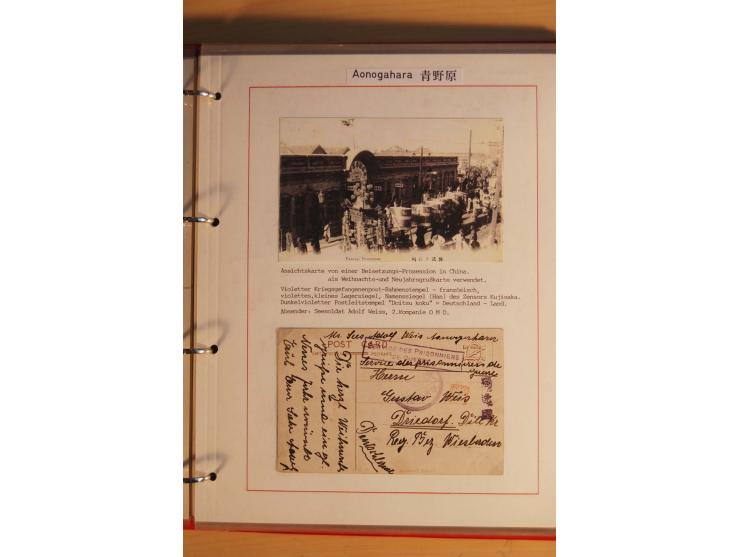 Aonogahara 青野原
Funeral Procession.
Ansichtskarte von einer Beisetzungs-Prozession in China.
als Weihnachts-und Neujahrsgrußkarte verwendet.
Violetter Kriegsgefangenenpost-Rahmenstempel - französisch,
violettes,kleines Lagersiegel, Namenssiegel (Han) des Zensors Kujisaka.
Dunkelvioletter Postleitstempel "Doitsu koku" = Deutschland - Land.
Absender: Seesoldat Adolf Weiss, 2.Kompanie O M D.
Adolf Weis Aonogahara
POST CARD
DES PRISONNIERS
Service des prisonniers de
guerre
Herrn
Gustav Weis
Driedorf. Dill Kr
Reg. Bez. Wiesbaden
Deutschland
Die herzl. Weihnachts
grüsse und ein gl.
Neues Jahr wünscht
Euch Euer